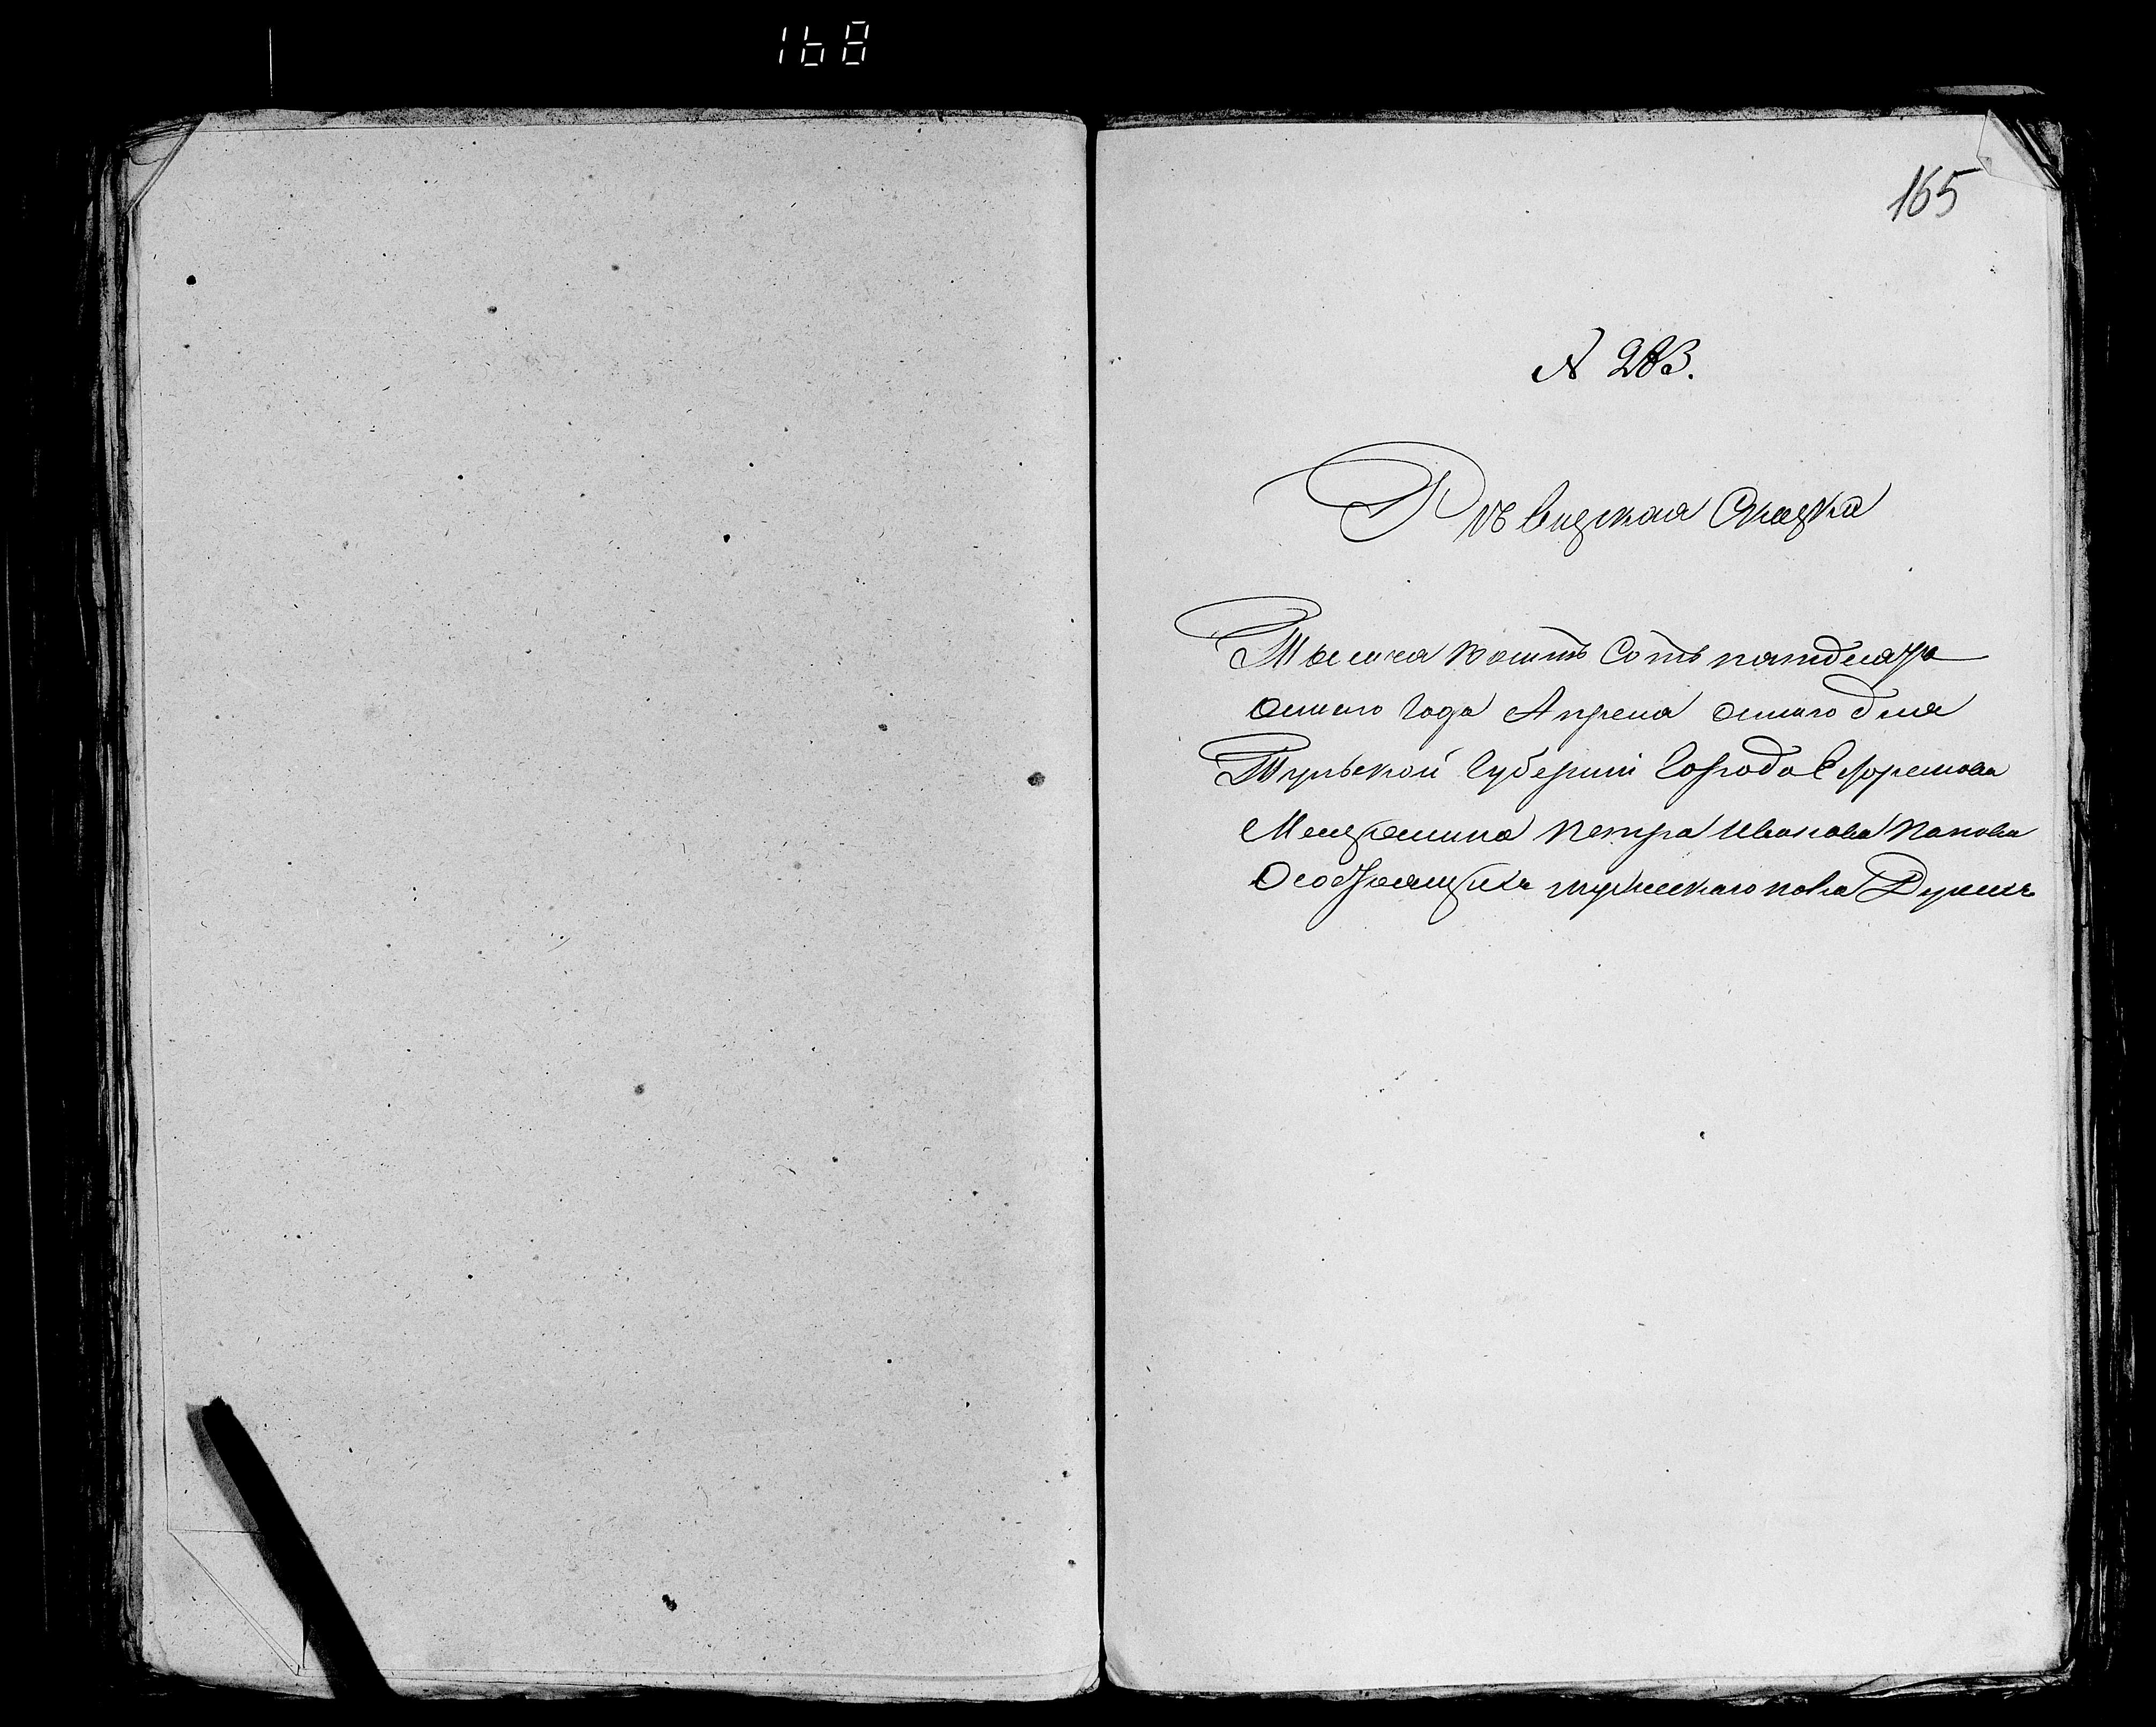 168
165
№ 283.
Рѣвизская Сказка
Тысяча восемь Сотъ пятдесятъ
осмаго года Апреля осмаго дня
Тульской Губерніи Города Ефремова
Мещанина Петра Иванова Попова
О состоящихъ мужескаго пола Душахъ